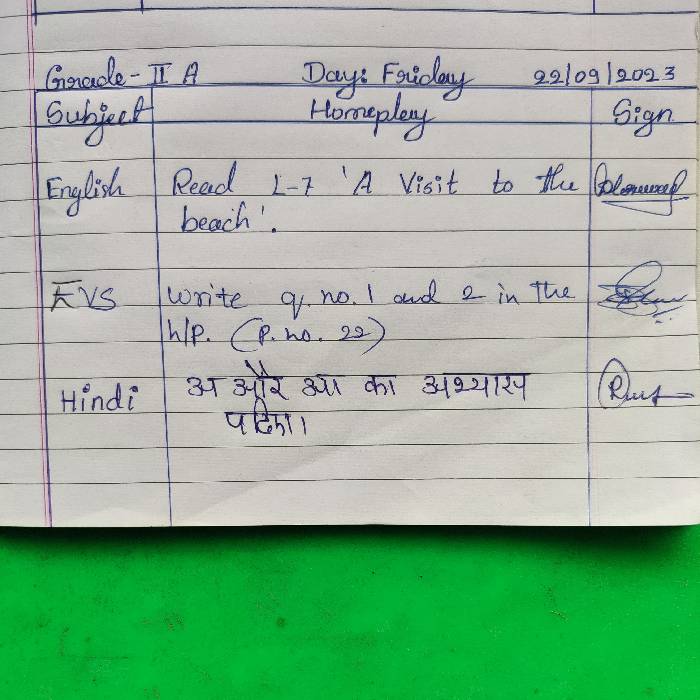 Grade - II A Day: Friday 22/09/2023
Subject Homeplay Sign
English Read L-7 'A Visit to the
beach'.
EVS Write q. no. 1 and 2 in the
h/p. (p. no. 22)
Hindi अ और आ का अभ्यास
पढिए।